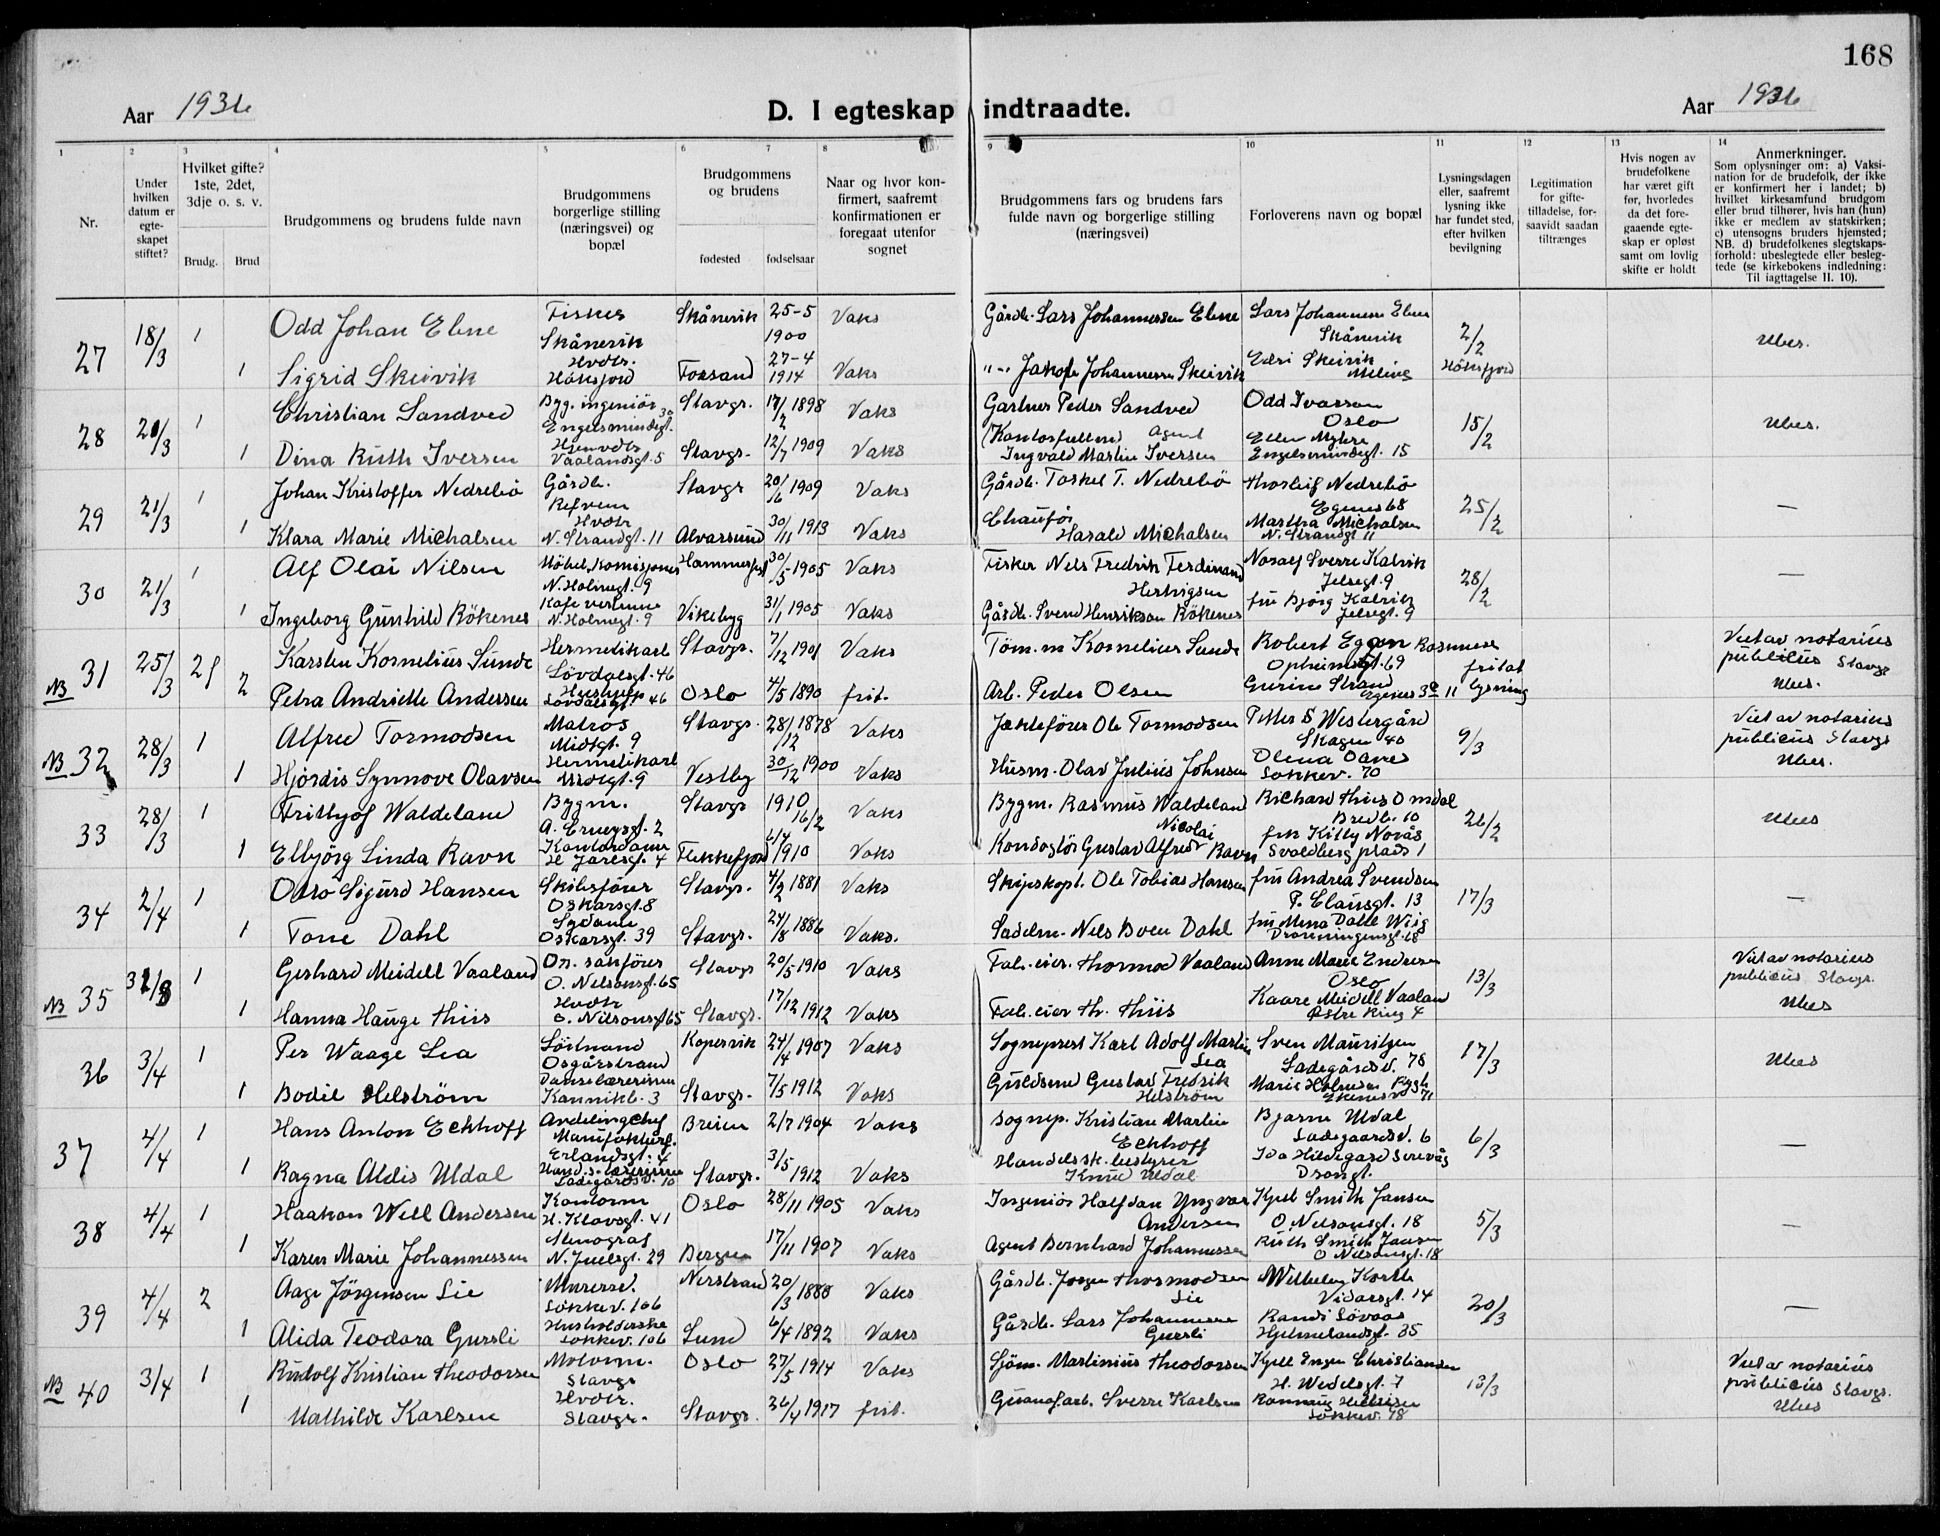 168
Aar 1936 D. I egteskap indtraadte. Aar 1936
1 2 3 4 5 6 7 8 9 10 11 12 13 14
Nr.
Under hvilken datum er egteskapet stiftet?
Hvilket gifte? 1ste, 2det, 3dje o. s. v.
Brudg. Brud
Brudgommens og brudens fulde navn
Brudgommens borgerlige stilling (næringsvei) og bopæl
Brudgommens og brudens
fødested fødselsaar
Naar og hvor konfirmert, saafremt konfirmationen er foregaat utenfor sognet
Brudgommens fars og brudens fars fulde navn og borgerlige stilling (næringsvei)
Forloverens navn og bopæl
Lysningsdagen eller, saafremt lysning ikke har fundet sted, efter hvilken bevilgning
Legitimation for giftetilladelse, forsaavidt saadan tiltrænges
Hvis nogen av brudefolkene har været gift før, hvorledes da det foregaaende egteskap er opløst samt om lovlig skifte er holdt
Anmerkninger.
Som oplysninger om: a) Vaksination for de brudefolk, der ikke er konfirmert her i landet; b) hvilket kirkesamfund brudgom eller brud tilhører, hvis han (hun) ikke er medlem av statskirken; c) utensogns bruders hjemsted; NB. d) brudefolkenes slegtskapsforhold: ubeslegtede eller beslegtede (se kirkebokens indledning: Til iagttagelse II. 10).
27 18/3 1 Odd Johan Ebne Fisker Skånevik Skånevik 25-5 1900 Vaks Gårdb. Lars Johannessen Ebne Lars Johannesen Ebne Skånevik 2/2 Høksfjord Ubes.
1 Sigrid Skeivik Hvdtr. Høksfjord Forsand 27-4 1914 Vaks "-" Jakob Johannesen Skeivik Edri Skeivik
28 21/3 1 Christian Sandved Byg. ingeniör Stavgr. 17/2 1898 Vaks Gartner Peder Sandved Odd Ivarson Oslo 15/2 Ubes.
1 Dina Ruth Iversen Hjemvdtr Vaalandsgt. 5 Stavgr. 12/7 1909 Vaks Agent Ingvald Martin Iversen Ellen Myhre Engelsmindegt. 15
29 21/3 1 Johan Kristoffer Nedrebö Gårdb. Refvem Stavgr 20/6 1909 Vaks Gårdb. Torkel T. Nedrebö Thorleif Nedrebö Egenes 68 25/2 —
1 Klara Marie Michalsen Hvdtr N. Strandgt. 11 Alvarsund 30/11 1913 Vaks Chauför Harald Michalsen Martha Michalsen N. Strandgt 11
30 21/3 1 Alf Olai Nilsen N. Holmegt. 9 Hammerfest 30/5 1905 Vaks Fisker Nels Fredrik Ferdinand Norolf Sverre Kalvik Jelsegt. 9 28/2 —
1 Ingeborg Gunhild Rökenes N. Holmegt. 9 Vikebyg 31/1 1905 Vaks Gårdb. Svend Henrikson Rökenes fru Björg Kalvik Jelsegt. 9
NB 31 25/3 2 Karsten Kornelius Sunde Hermetikarb Lövdalsgt. 46 Stavgr. 7/12 1901 Vaks Töm.m Kornelius Sunde Robert Egeon Rasmusen Opheimsgt. 69 fritat lysning Viet av notarius publicus Stavgr Ubes.
2 Petra Andriette Andersen Lövdalsgt 46 Oslo 4/5 1890 frit. Arb. Peder Olsen Gurine Strand
NB 32 28/3 1 Alfred Tormodsen Matros Midtgt. 9 Stavgr. 28/12 1878 Vaks Jaktefører Ole Tormodsen Petter S Westergård Skagen 40 9/3 Viet av notarius publicus Stavgr Ubes.
1 Hjördis Synnove Olavsen Hermetikarb Midtgt. 9 Vestby 30/12 1900 Vaks Husm. Olav Julius Johnsen Olena Oanes Løkkev. 70
33 28/3 1 Frithjof Waldeland Bygm. Stavgr 1910 16/2 Vaks Bygm. Rasmus Waldeland Richard Thies Omdal Bredb. 10 26/2 Ubes
1 Elbjörg Linda Ravn Kontordame H Jarlsgt. 4 Flekkefjord 6/4 1910 Vaks Kondogtör Gustav Alfred Nicolai Ravn frk Kitty Novås Svoldberg plads 1
34 2/4 1 Sigurd Hansen Skibsförer Oskarsgt. 8 Stavgr. 4/2 1881 Vaks Skipskapt. Ole Tobias Hansen fru Andrea Svendsen P. Clausgt. 13 17/3 —
1 Tone Dahl Sydame Oskarsgt. 39 Stavgr. 24/8 1886 Vaks. Sadelm. Nels Boen Dahl fru Mena Dahl Wiig Dronningensgt. 68
NB 35 1 Gerhard Meidell Vaaland On. sakförer O. Nilsonsgt. 65 Stavgr 20/5 1910 Vaks Fab. eier. Thormod Vaaland Anne Marie Endresen Oslo 13/3 Viet av notarius publicus Stavgr. Ubes
1 Hanna Hauge Thiis Hvdtr O. Nilsonsgt 65 Stavgr. 17/12 1912 Vaks Fab. eier Th. Thiis Kaare Meidell Vaaland Østre Ring 4
36 3/4 1 Per Waage Lea Löitnand Osgårstrand Kopervik 24/4 1907 Vaks Sogneprest Karl Adolf Martin Lea Sven Mauritzen Ladegårdsv. 78 17/3 Ubes
1 Bodil Helström Danselærerinne Kannikb. 3 Stavgr. 7/5 1912 Vaks Guldsmed Gustav Fredrik Helström
37 4/4 1 Hans Anton Eckhoff Avdelingchef Manufakturf. Erlandsgt. 4 Breien 2/7 1904 Vaks Sognep. Kristian Martin Eckhoff Bjarne Udal Ladegaardsv. 6 6/3 —
1 Ragna Aldis Udal Ladegårdsv. 10 Stavgr. 3/5 1912 Vaks Handelssk. bestyrer Knud Udal Ida Hildegard Serevåg
38 4/4 1 Haakon Well Andersen Kontorm H. Klavsgt. 41 Oslo 28/11 1905 Vaks Ingeniör Halfdan Yngvar Andersen Kjell Smith Jansen O. Nilsonsgt. 18 5/3 —
1 Karen Marie Johannessen Stenograf N. Juelsgt. 29 Bergen 17/11 1907 Vaks Agent Bernhard Johannessen Ruth Smith Jansen O Nilsonsgt. 18
39 4/4 2 Aage Jörgensen Lie Murersv. Løkkev. 106 Nerstrand 20/3 1880 Vaks Gårdb. Jorgen Thormodsen Lie Wilhelm Korth Vidarsgt. 14 20/3 —
1 Alida Teodora Gursli Husholderske Løkkev. 106 Lund 6/4 1892 Vaks Gårdb. Lars Johannesen Gursli Randi Lövaas Hjelmelandsgt. 35
NB 40 3/4 1 Rudolf Kristian Theodorsen Motorm. Stavgr Oslo 27/5 1914 Vaks Sjöm. Martinius Theodorsen Kjell Inger Christiansen H. Wedelsgt. 7 13/3 Viet av notarius publicus Stavgr. Ubes
1 Mathilde Karlsen Hvdtr. Stavgr. Stavgr. 26/4 1917 frit. Guanof.arb. Sverre Karlsen Løkkev. 78